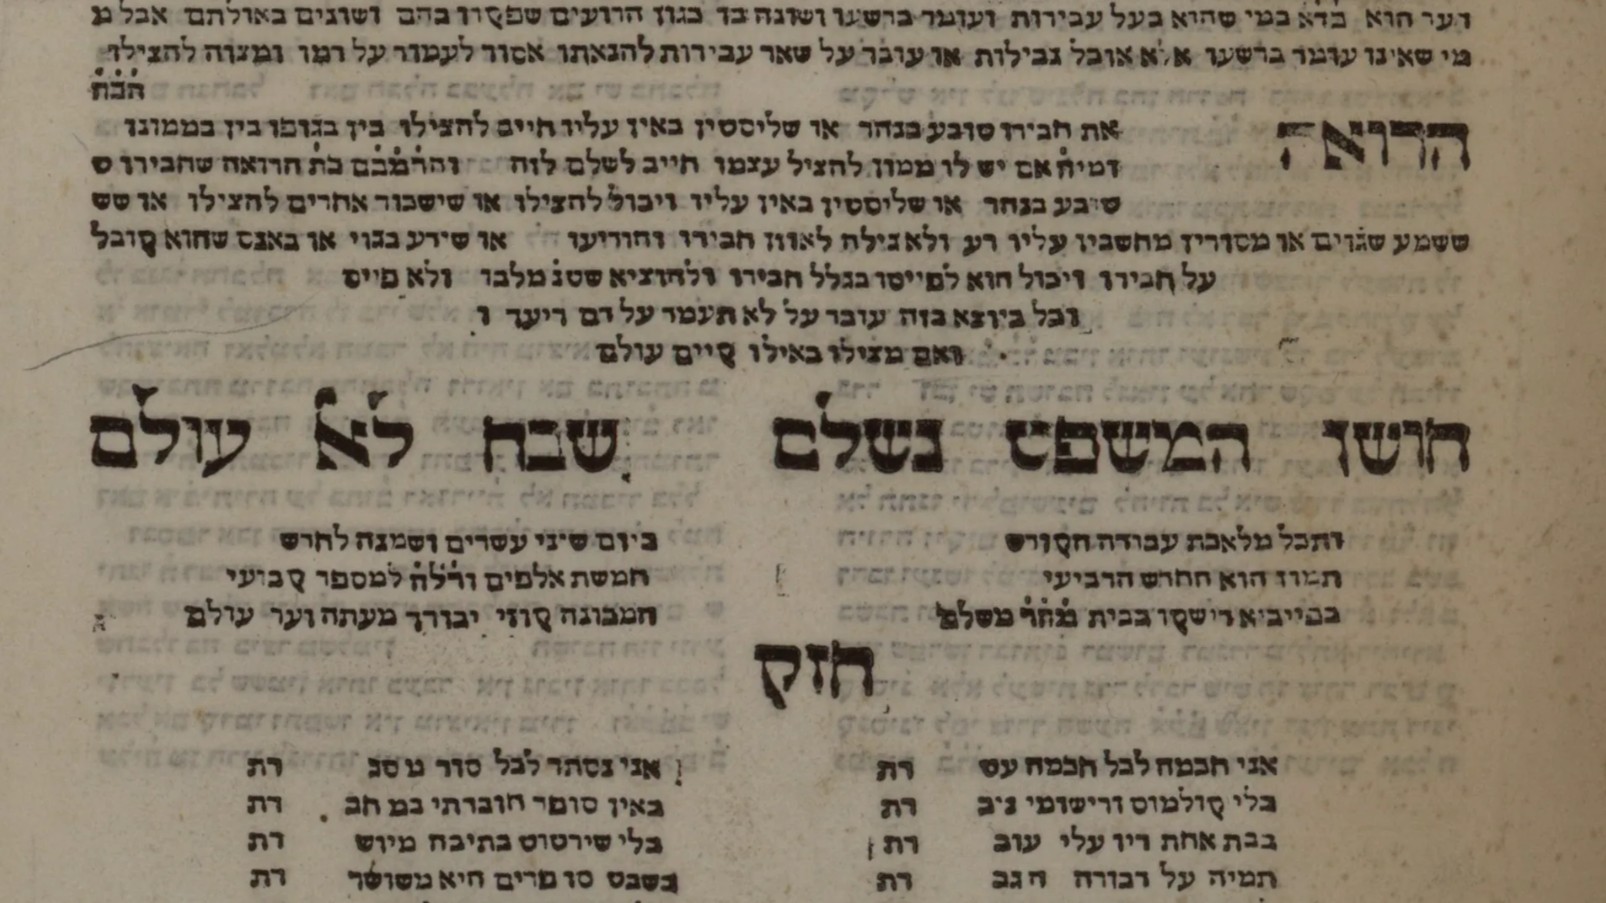 ועד הוא בד״א במי שהיא בעל עבירות ועומד ברשעו ושונה בו כגון הרועים שפקרו בהם ושונים באולתם אבל מ
מי שאינו עומד ברשעו אלא אוכל נבילות או עובר על שאר עבירות להנאתו אסור לעמוד על דמו ומצוה להצילו
הרואה
את חבירו טובע בנהר או שליסטין באין עליו חייב להצילו בין בגופו בין בממונו
ומיה אם יש לו ממון להציל עצמו חייב לשלם לזה והרמב״ם כת׳ הרואה שחבירו ט
טובע בנהר או שליסטין באין עליו ויכול להצילו או שישכור אחרים להצילו או שש
ששמע שגוים או מסורין מחשבין עליו רע ולא גילה לאוזן חבירו והודיעו או שידע בגוי או באנס שהוא קובל
על חבירו ויכול הוא לפייסו בגלל חבירו ולהוציא שטנ׳ מלבו ולא פייס
וכל כיוצא בזה עובר על לא תעמד על דם ריעך ו
ואם מצילו כאילו קיים עולם
חושן המשפט נשלם שבח לא׳ עולם
ותכל מלאכת עבודת הקודש
תמוז הוא החדש הרביעי
בפייביא דישקו בבית משלם
ביום שיני עשרים ושמנה לחדש
חמשת אלפים ורל״ה למספר קבועי
המכונה קוזי יבורך מעתה ועד עולם
חזק
אני חכמה לכל חכמה עט רת
בלי קולמוס ורישומי ניכ רת
בבת אחת דיו עלי עוב רת
תמיה על דבורה הגב רת
אני נסתר לכל סוד מסת רת
באין סופר חוברתי במחב רת
בלי שירטוט כתיבה מיוש רת
בשבט סופרים היא משושר רת